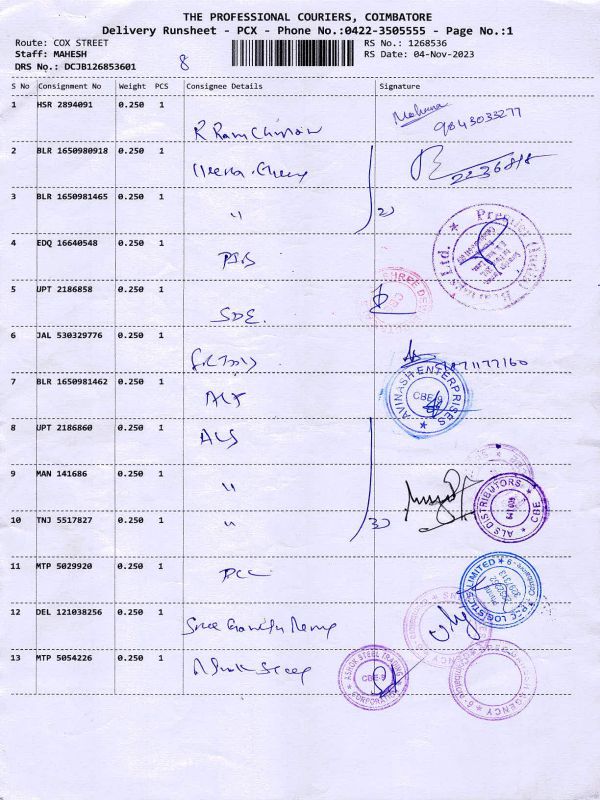 THE PROFESSIONAL COURIERS, COIMBATORE
Delivery Runsheet - PCX - Phone No.:0422-3505555 - Page No.:1
Route: COX STREET RS No.: 1268536
Staff: MAHESH RS Date: 04-Nov-2023
DRS No.: DCJB126853601 8
S No Consignment No Weight PCS Consignee Details Signature
1 HSR 2894091 0.250 1
9843033277
2 BLR 1650980918 0.250 1
223688
3 BLR 1650981465 0.250 1 " 2
4 EDQ 16640548 0.250 1
Premier
5 UPT 2186858 0.250 1 SDE.
SHREE
6 JAL 530329776 0.250 1
7 BLR 1650981462 0.250 1
AVINASH ENTERPRISES CBE-9
8 UPT 2186860 0.250 1 ALS
9 MAN 141686 0.250 1 "
ALS DISTRIBUTORS CBE 641009
10 TNJ 5517827 0.250 1 " 3
11 MTP 5029920 0.250 1
LOGISTICS LIMITED
12 DEL 121038256 0.250 1 Sree
13 MTP 5054226 0.250 1 Ashok Steel
ASHOK STEEL TRADING CORPORATION CBE-9
AGENCY